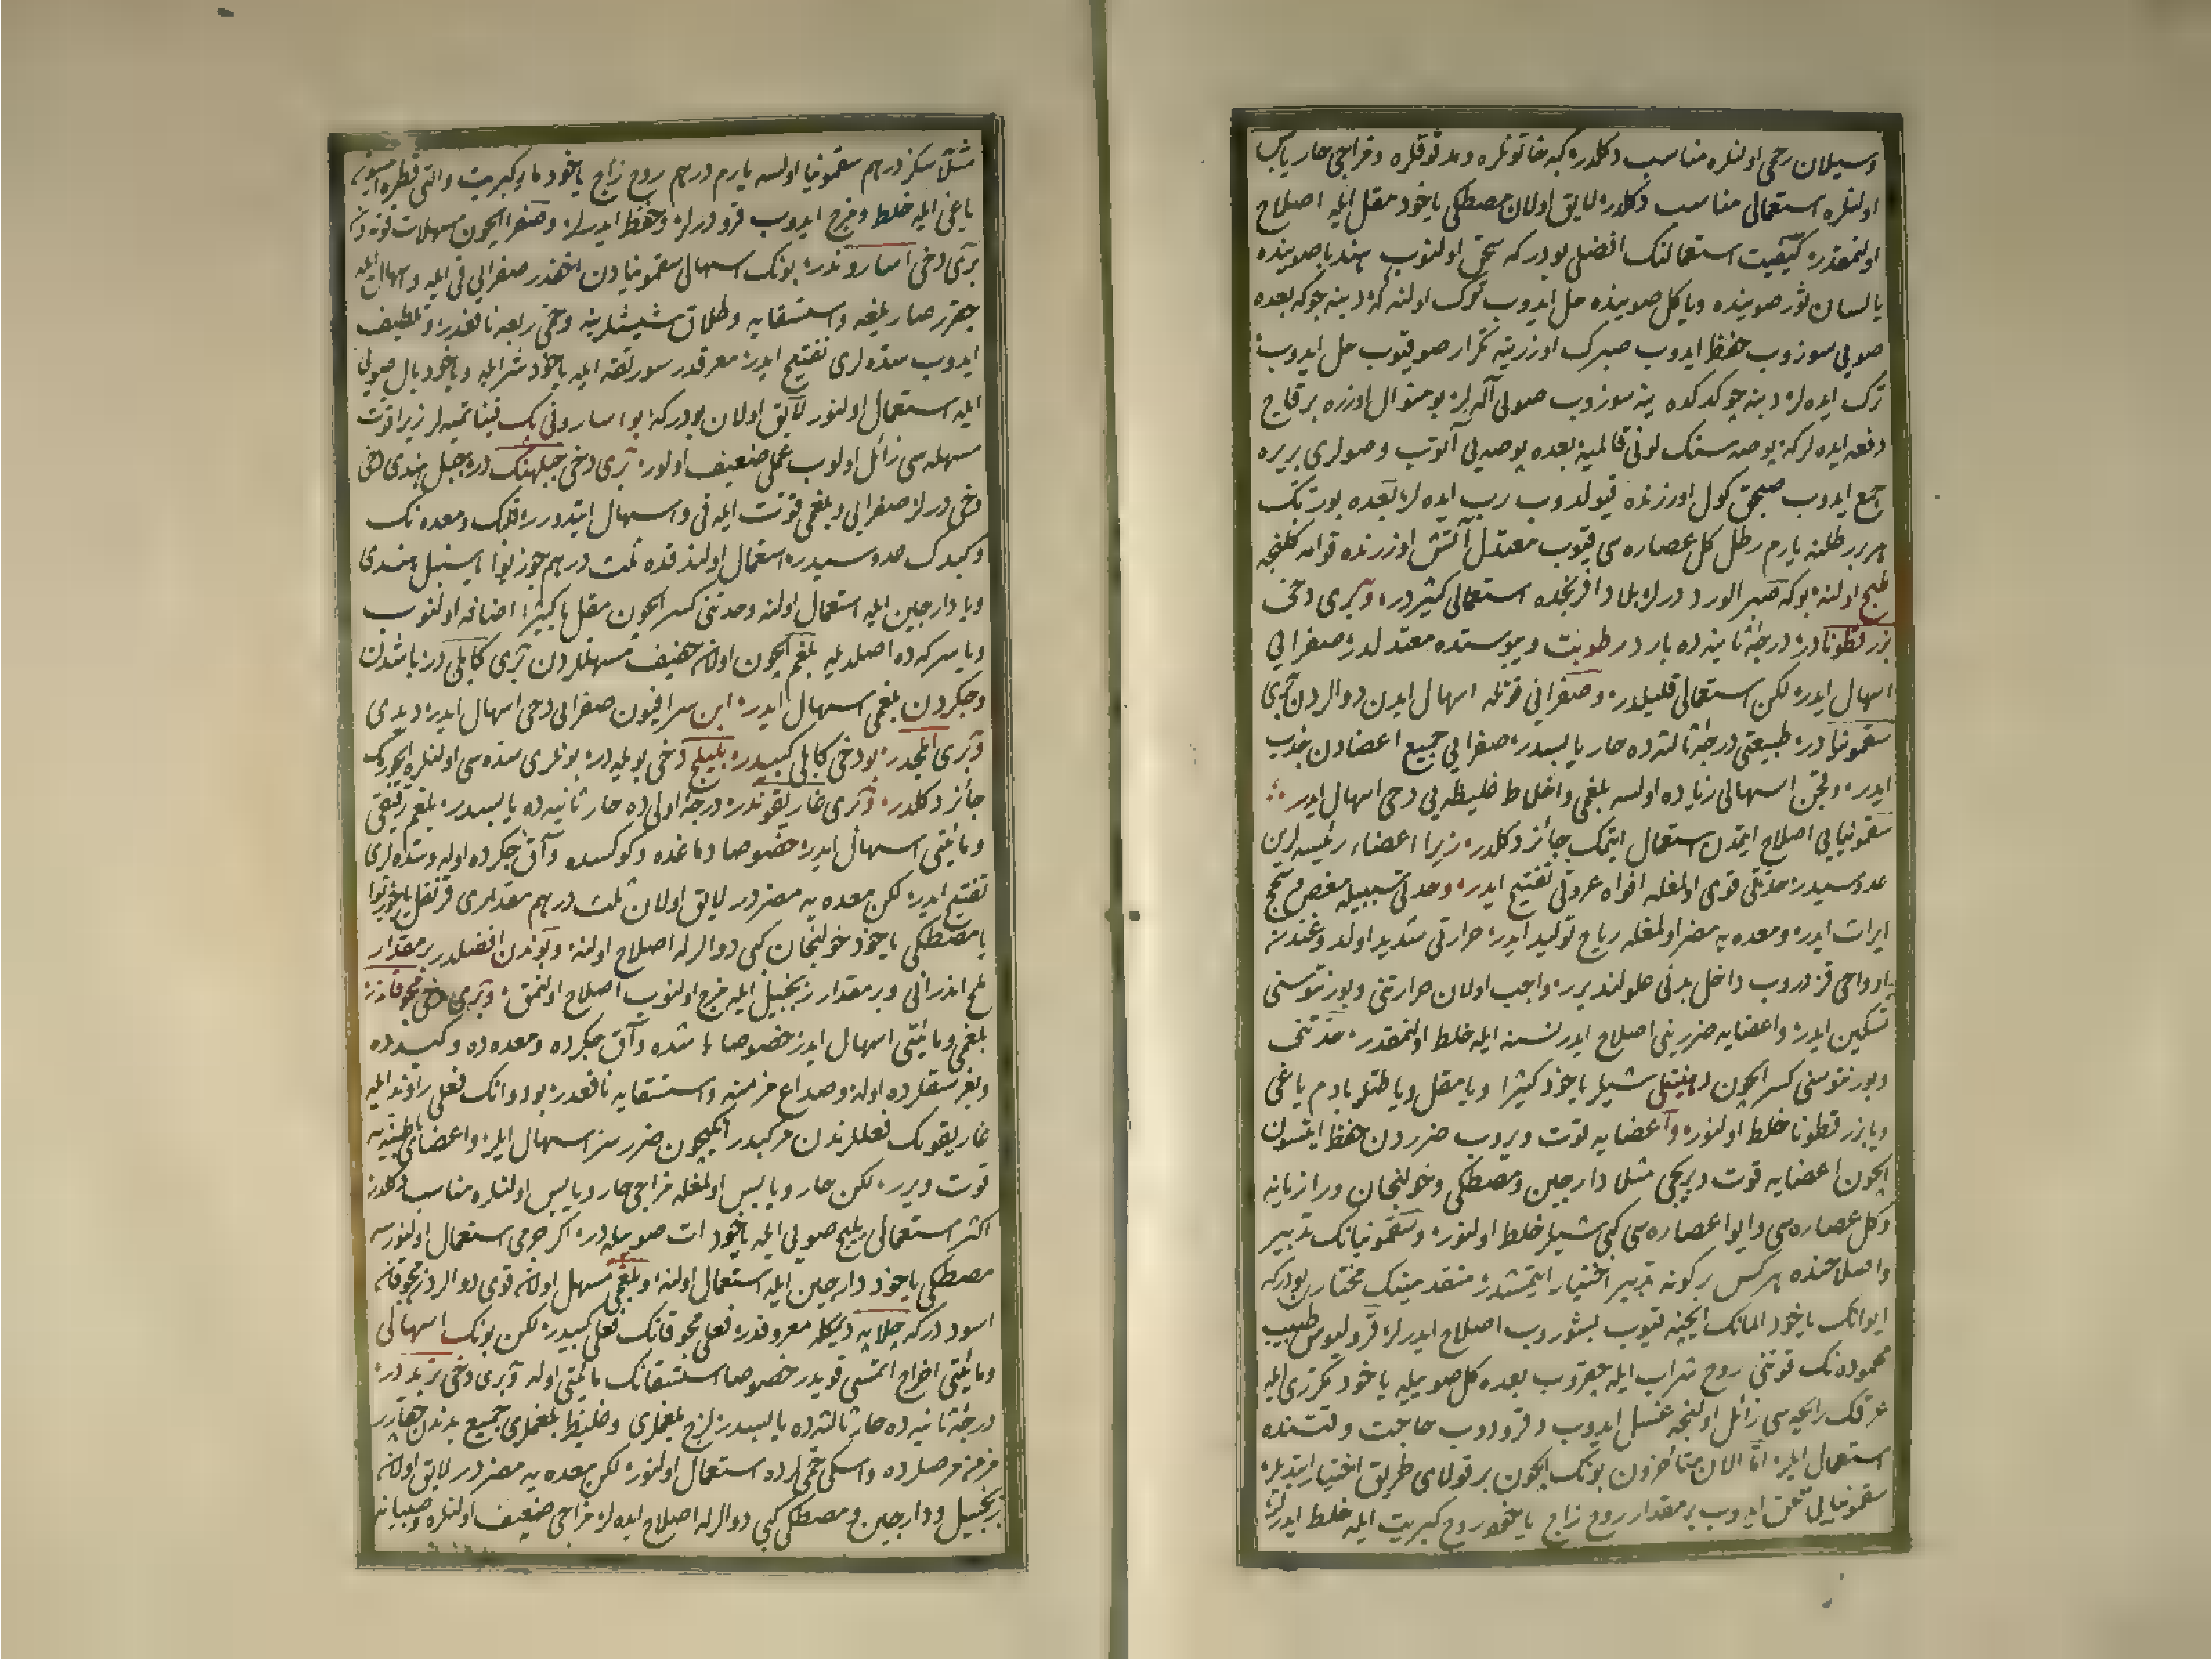 وسیلان رحمی اولنلره مناسب دکلدر؛ کبه خاتونلره ومدقوقلره ومزاجی حار یابس
اولنلره استعمالی مناسب دکلدر؛ لایق اولان مصطکی یاخود مقل ایله اصلاح
اولنمقدر؛ کیفیت استعمالنک افضلی بودر که سحق اولنوب هندبا صوینده
یا لسان ثور صوینده ویا کل صوینده حل ایدوب ترک اولنه که دیبنه چوکه بعده
صویی سوزوب حفظ ایدوب صبرک اوزرینه تکرار صو قیوب حل ایدوب
ترک ایده لر؛ دیبنه چوکدکده ینه سوزوب صویی آله لر؛ بو منوال اوزره بر قاچ
دفعه ایده لر که پوصه سنک لونی قالمیه؛ بعده پوصه یی آتوب وصولری بریره
جمع ایدوب صیجق کول اوزرنده قیولدوب رب ایده لر؛ بعده بورتک
هر بر رطلنه یارم رطل کل عصاره سی قیوب معتدل آتش اوزرنده قوامه کلنجه
طبخ اولنه؛ بوکه صبر الورد درلر؛ بلاد افرنجده استعمالی کثیردر؛ وبری دخی
بزر قطونادر؛ درجۀ ثانیه ده بارد رطوبت ویبوستده معتدلدر؛ صفرایی
اسهال ایدر؛ لکن استعمالی قلیلدر؛ وصفرایی قوتله اسهال ایدن دوالردن بری
سقمونیادر؛ طبیعتی درجۀ ثالثه ده حار یابسدر؛ صفرایی جمیع اعضادن جذب
ایدر؛ ولجن اسهالی زیاده اولسه بلغمی واخلاط غلیظه یی دخی اسهال ایدر
سقمونیایی اصلاح ایتمدن استعمال ایتمک جائز دکلدر؛ زیرا اعضاء رئیسه لرین
عدوسیدر؛ حدتی قوی اولمغله افواه عروقی تفتیح ایدر؛ وحدتی سببیله مغص وسحج
ایراث ایدر؛ ومعده یه مضر اولمغله ریاح تولید ایدر؛ حرارتی شدید اولدوغندن
ارواحی قزدروب داخل بدنی علولندیرر؛ واجب اولان حرارتنی وبورنتوسنی
تسکین ایدر؛ واعضایه ضررینی اصلاح ایدر نسنه ایله خلط اولنمقدر؛ حدتنی
وبورنتوسنی کسر ایچون دهنیتلی شیلر یاخود کثیرا ویا مقل ویا طتلو بادم یاغی
ویا بزر قطونا خلط اولنور؛ واعضایه قوت ویروب ضرردن حفظ ایتسون
ایچون اعضایه قوت ویریجی مثلا دارچین ومصطکی وخولنجان ورازیانه
وکل عصاره سی وایوا عصاره سی کبی شیلر خلط اولنور؛ وسقمونیانک تدبیر
واصلاحنده هر کس بر کونه تدبیر اختیار ایتمشدر؛ متقدمینک مختاری بودر که
ایوانک یاخود المانک ایچنه قیوب بشوروب اصلاح ایدرلر؛ قرولیوس طبیب
محموده نک قوتنی روح شراب ایله چقروب بعده کل صوییله یاخود تکرری ایله
عرقک رایحه سی زائل اولنجه غسل ایدوب وقرودوب حاجت وقتنده
استعمال ایلر؛ اما الان متأخرون بونک ایچون بر قولای طریق اختیار ایتدیلر؛
سقمونیایی سحق ایدوب بر مقدار روح زاج یاخود روح کبریت ایله خلط ایدرلر
مثلا سکز درهم سقمونیا اولسه یارم درهم روح زاج یاخود ماء کبریت والتی قطره انیسون
یاغی ایله خلط ومزج ایدوب قرودرلر؛ وحفظ ایدرلر؛ وصفرا ایچون مسهلات قویه دن
بری دخی اساروندر؛ بونک اسهالی سقمونیادن اخفدر صفرایی قی ایله واسهال ایله
چقرر صاریلغه واستسقایه وطلاق شیشلرینه وحمی ربعه نافعدر؛ وتلطیف
ایدوب سده لری تفتیح ایدر؛ معرقدر سورتقه ایله یاخود شراب ایله ویاخود بال صویی
ایله استعمال اولنور لایق اولان بودر که بو اسارونی پک قیناتمیه لر زیرا قوت
مسهله سی زائل اولوب عملی ضعیف اولور؛ بری دخی جبلهنک در؛ جبل هندی دخی
دخی درلر صفرایی وبلغمی قوت ایله قی واسهال ایتدورر؛ فلک ومعده نک
وکبدک عدوسیدر؛ استعمال اولندقده ثلث درهم جوز بوا یا سنبل هندی
ویا دارچین ایله استعمال اولنه وحدتنی کسر ایچون مقل یا کثیرا اضافه اولنوب
ویا سرکه ده اصلدیله بلغم ایچون اولان خفیف مسهللردن بری کابلی درر باشدن
وجکردن بلغمی اسهال ایدر؛ ابن سرافیون صفرایی دخی اسهال ایدر؛ دیدی
وبری املجدر؛ بو دخی کابلی کبیدر؛ بلیلج دخی بویله در؛ بونلری سده سی اولنلره ایچورمک
جائز دکلدر؛ وبری غاریقوندر؛ درجۀ اولی ده حار ثانیه ده یابسدر؛ بلغم رقیقی
ومائیتی اسهال ایدر؛ خصوصا دماغده وکوکسده وآق جکرده اوله وسده لری
تفتیح ایدر؛ لکن معده یه مضردر لایق اولان ثلث درهم مقداری قرنفل یا جوز بوا
یا مصطکی یاخود خولنجان کبی دوالرله اصلاح اولنه؛ وبوندن افضلدر بر مقدار
ملح اندرانی وبر مقدار زنجبیل ایله مزج اولنوب اصلاح اولنمق؛ وبری دخی مجوقاندر
بلغمی ومائیتی اسهال ایدر خصوصا باشده وآق جکرده ومعده ده وکبدده
وبغرسقلرده اوله؛ وصداع مزمنه واستسقایه نافعدر؛ بو دوانک فعلی راوند ایله
غاریقونک فعللرندن مرکبدر انکیچون ضررسز اسهال ایلر؛ واعضای باطنیه یه
قوت ویرر؛ لکن حار ویابس اولمغله مزاجی حار ویابس اولنلره مناسب دکلدر
اکثر استعمالی بلیج صویی ایله یاخود ات صوییله در؛ اکر جرمی استعمال اولنورسه
مصطکی یاخود دارچین ایله استعمال اولنه؛ وبلغمی مسهل اولان قوی دوالردن مجوقان
اسود در که جلاپه دیمکله معروفدر؛ فعلی مجوقانک فعلی کبیدر؛ لکن بونک اسهالی
ومائیتی اخراج ایتمسی قویدر خصوصا استسقانک مائیتی اوله وبری دخی تربد در؛
درجۀ ثانیه ده حار ثالثه ده یابسدر لزج بلغملری وغلیظ بلغملری جمیع بدندن چقارر
مزمن مرضلرده واسکی حمی لرده استعمال اولنور؛ لکن معده یه مضردر لایق اولان
زنجبیل ودارچین ومصطکی کبی دوالرله اصلاح ایده لر؛ مزاجی ضعیف اولنلره وصبیانه